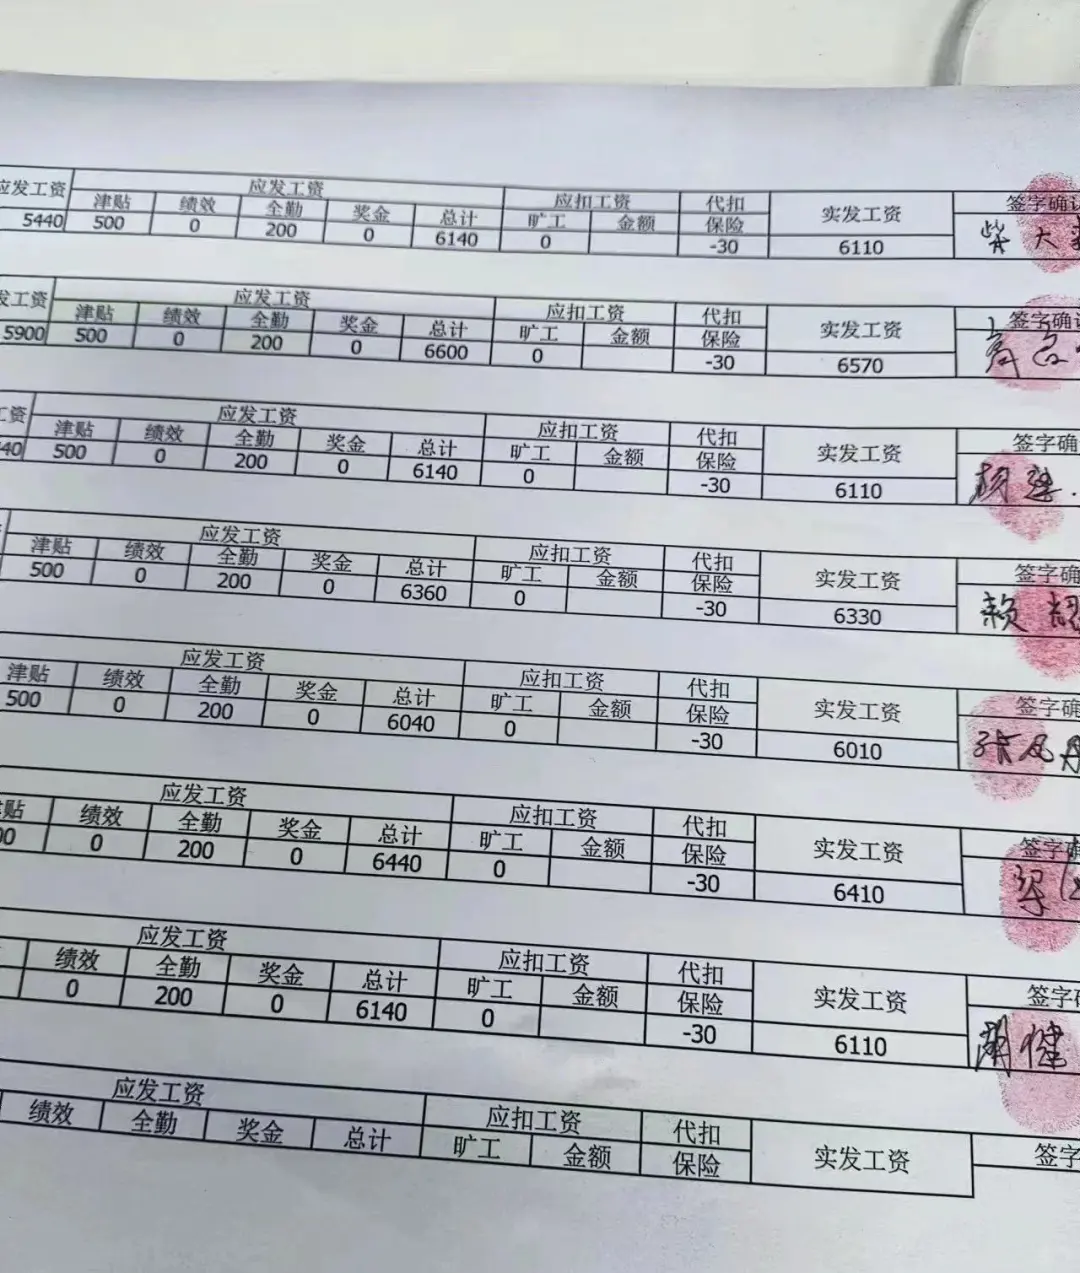 应发工资 应发工资 应扣工资 代扣 实发工资 签字确认
津贴 绩效 全勤 奖金 总计 旷工 金额 保险
5440 500 0 200 0 6140 0 -30 6110 柴大
发工资 应发工资 应扣工资 代扣 实发工资 签字确认
津贴 绩效 全勤 奖金 总计 旷工 金额 保险
5900 500 0 200 0 6600 0 -30 6570
工资 应发工资 应扣工资 代扣 实发工资 签字确
津贴 绩效 全勤 奖金 总计 旷工 金额 保险
40 500 0 200 0 6140 0 -30 6110
应发工资 应扣工资 代扣 实发工资 签字确
津贴 绩效 全勤 奖金 总计 旷工 金额 保险
500 0 200 0 6360 0 -30 6330 赖
应发工资 应扣工资 代扣 实发工资 签字确
津贴 绩效 全勤 奖金 总计 旷工 金额 保险
500 0 200 0 6040 0 -30 6010 张凤丹
应发工资 应扣工资 代扣 实发工资 签字确
贴 绩效 全勤 奖金 总计 旷工 金额 保险
00 0 200 0 6440 0 -30 6410
应发工资 应扣工资 代扣 实发工资 签字
绩效 全勤 奖金 总计 旷工 金额 保险
0 200 0 6140 0 -30 6110 胡健
应发工资 应扣工资 代扣 实发工资 签字
绩效 全勤 奖金 总计 旷工 金额 保险